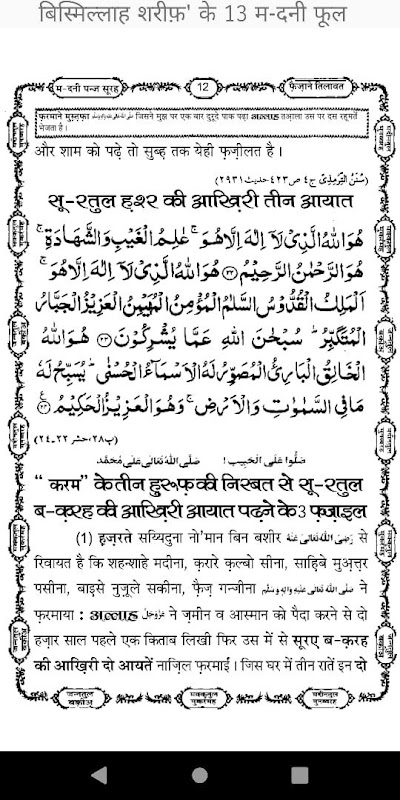 बिस्मिल्लाह शरीफ़' के 13 म-दनी फूल
म-दनी पन्ज सूरह
12
फ़ैज़ाने तिलावत
फ़रमाने मुस्तफ़ा صلى الله عليه وسلم जिसने मुझ पर एक बार दुरूदे पाक पढ़ा अल्लाह तआ़ला उस पर दस रह़मतें
भेजता है।
और शाम को पढ़े तो सुब्ह़ तक येही फ़ज़ीलत है।
(سُنَنُ التِّرْمِذِيّ ج٤ ص٤٢٣ حديث ٢٩٣١)
सू-रतुल ह़श्र की आख़िरी तीन आयात
هُوَاللهُ الَّذِیْ لَاۤ اِلٰهَ اِلَّا هُوَ ۚ عٰلِمُ الْغَیْبِ وَالشَّهَادَةِ ۚ
هُوَ الرَّحْمٰنُ الرَّحِیْمُ ﴿۲۲﴾ هُوَاللهُ الَّذِیْ لَاۤ اِلٰهَ اِلَّا هُوَ ۚ
اَلْمَلِكُ الْقُدُّوْسُ السَّلٰمُ الْمُؤْمِنُ الْمُهَیْمِنُ الْعَزِیْزُ الْجَبَّارُ
الْمُتَكَبِّرُ ؕ سُبْحٰنَ اللهِ عَمَّا یُشْرِكُوْنَ ﴿۲۳﴾ هُوَ اللهُ
الْخَالِقُ الْبَارِئُ الْمُصَوِّرُ لَهُ الْاَسْمَآءُ الْحُسْنٰی ؕ یُسَبِّحُ لَهٗ
مَا فِی السَّمٰوٰتِ وَ الْاَرْضِ ۚ وَهُوَ الْعَزِیْزُ الْحَكِیْمُ ﴿۲۴﴾
(پ٢٨،حشر ٢٢ـ٢٤)
صَلُّوا عَلَى الْحَبِيْب ! صَلَّى اللهُ تَعَالٰى عَلٰى مُحَمَّد
“ करम” के तीन हुरूफ़ की निस्बत से सू-रतुल
ब-क़रह की आख़िरी आयात पढ़ने के 3 फ़ज़ाइल
(1) ह़ज़रते सय्यिदुना नो'मान बिन बशीर رَضِيَ اللهُ تَعَالٰى عَنْهُ से
रिवायत है कि शहन्शाहे मदीना, क़रारे क़ल्बो सीना, साह़िबे मुअ़त्तर
पसीना, बाइसे नुज़ूले सकीना, फ़ैज़ गन्जीना صَلَّى اللهُ تَعَالٰى عَلَيْهِ وَاٰلِهٖ وَسَلَّم ने
फ़रमाया : अल्लाह عَزَّوَجَلَّ ने ज़मीन व आस्मान को पैदा करने से दो
हज़ार साल पहले एक किताब लिखी फिर उस में से सूरए ब-क़रह
की आख़िरी दो आयतें नाज़िल फ़रमाईं। जिस घर में तीन रातें इन दो
जन्नतुल
बक़ीअ़
मक्कतुल
मुकर्रमह
मदीनतुल
मुनव्वरह